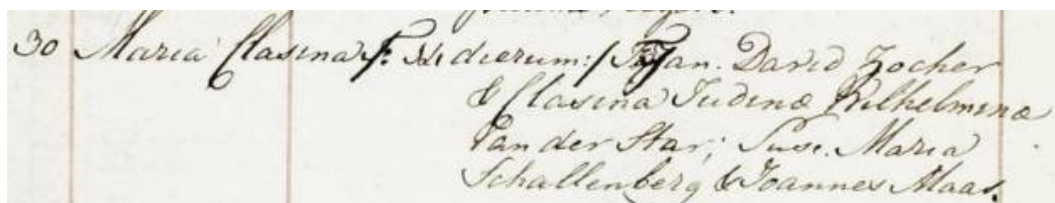 30 Maria Clasina /: dierum :/ Jan David Zocher
& Clasina Judinæ Wilhelminæ
van der Star; Susc. Maria
Schallenberg & Joannes Maas.